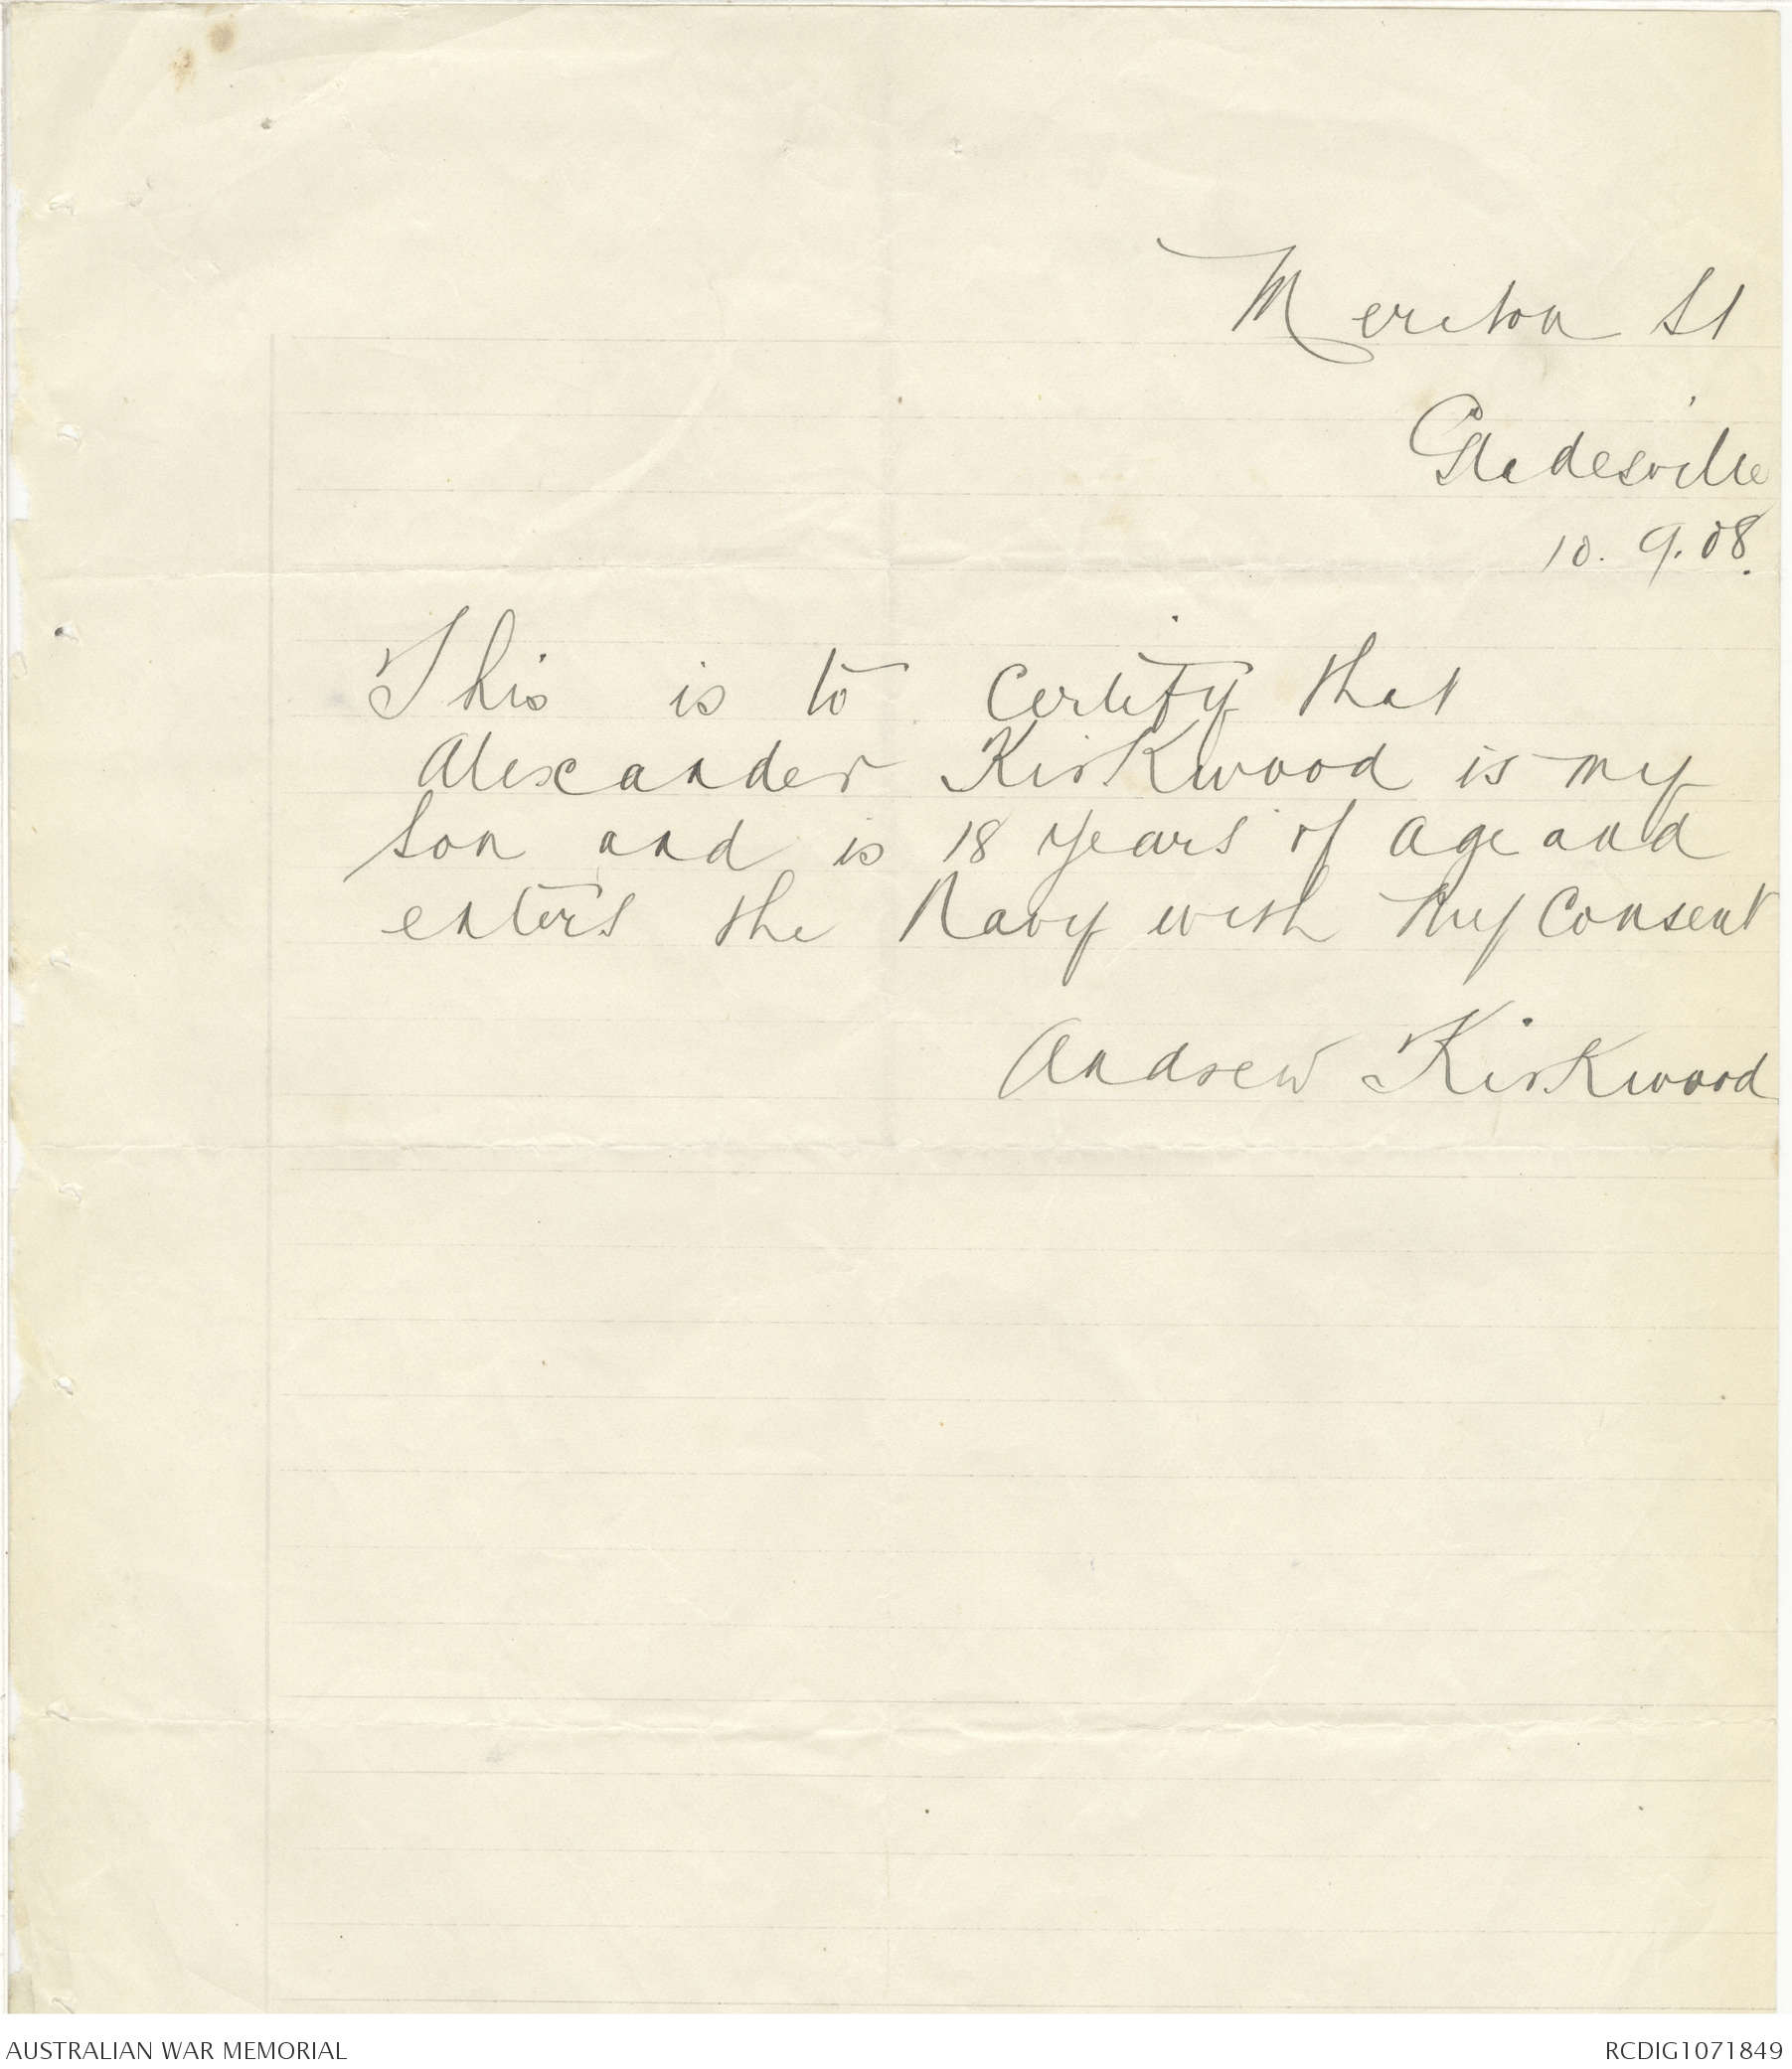 Meriton St
Gladesville
10. 9. 08.
This is to Certify that
Alexander Kirkwood is my
son and is 18 years of age and
enters the Navy with my Consent
Andrew Kirkwood
AUSTRALIAN WAR MEMORIAL
RCDIG1071849